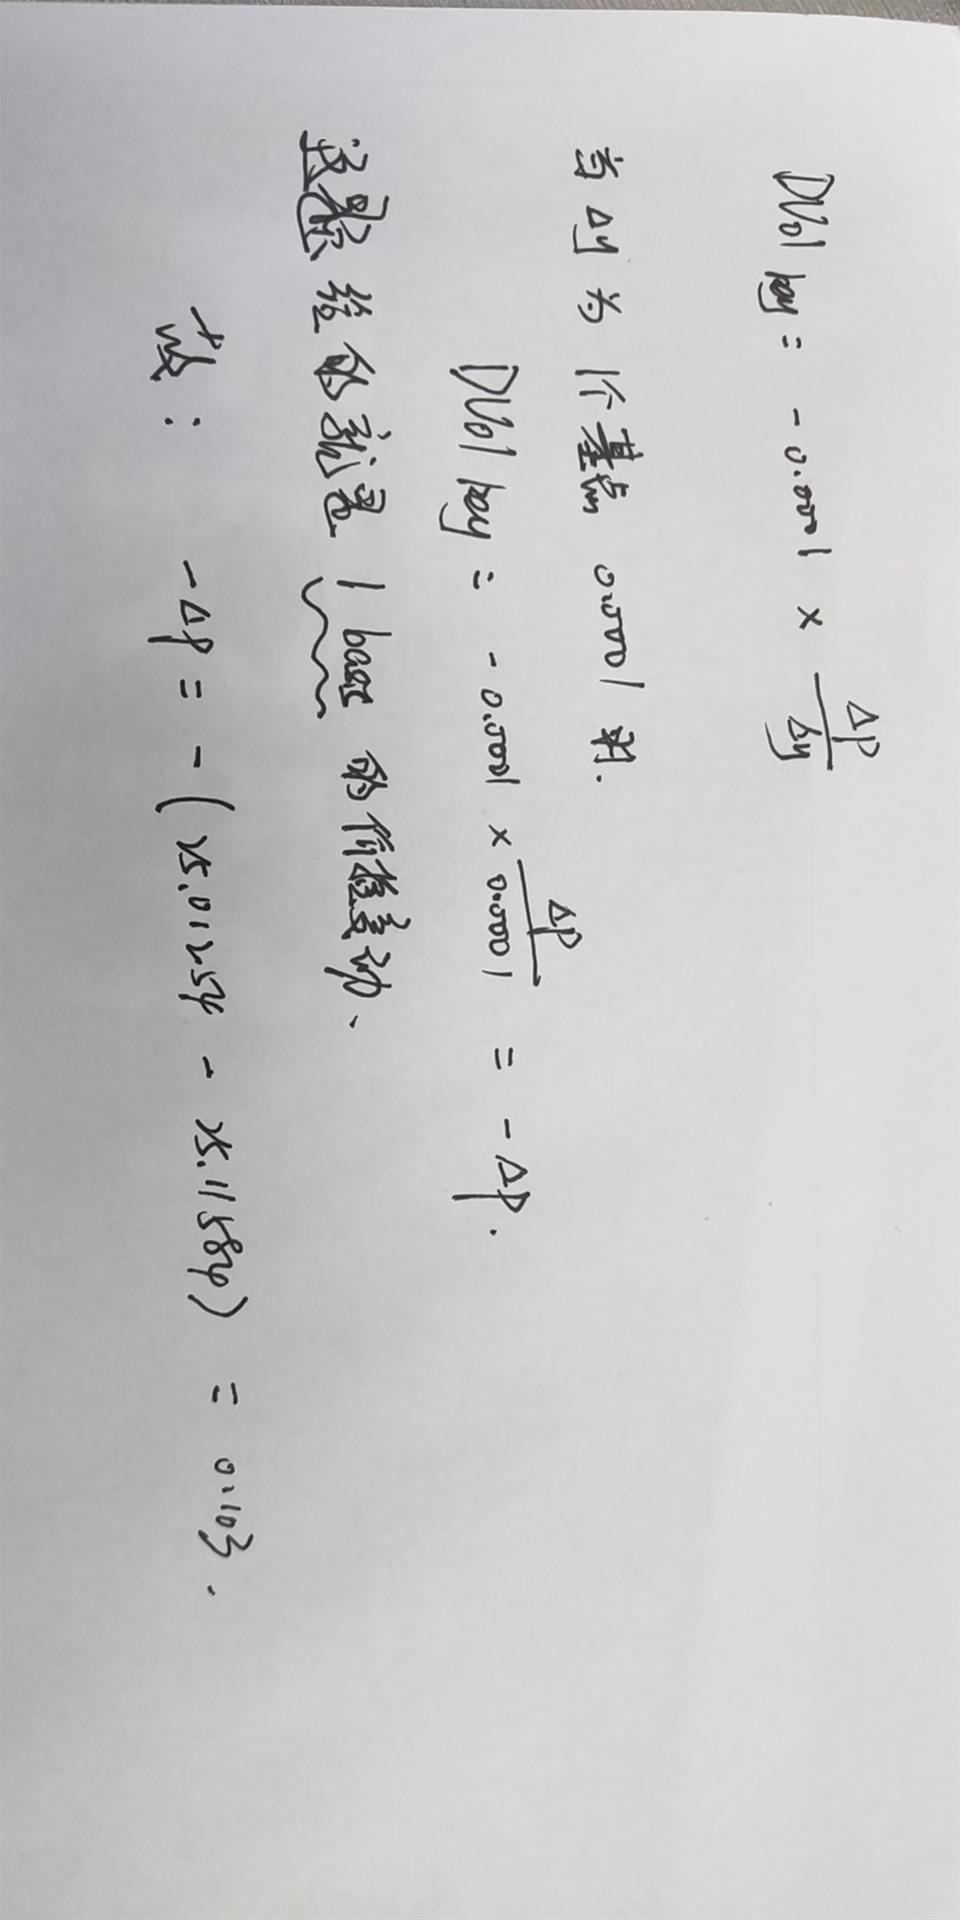 DV01 key = -0.0001 × ΔP/Δy
当 Δy 为 1个基点 0.0001 时.
DV01 key = -0.0001 × ΔP/0.0001 = -ΔP.
这题给的就是 1 base 的价格变动、
故: -ΔP = -(25.01254 - 25.11584) = 0.103.